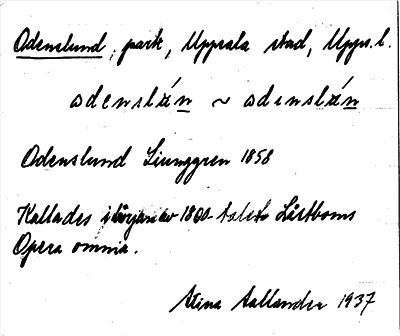 Odenslund, park, Uppsala stad, Upps. l.
odenslún ~ odenslún
Odenslund Ljunggren 1858
Kallades i början av 1800-talets Låstboms
Opera omnia.
Stina
1937